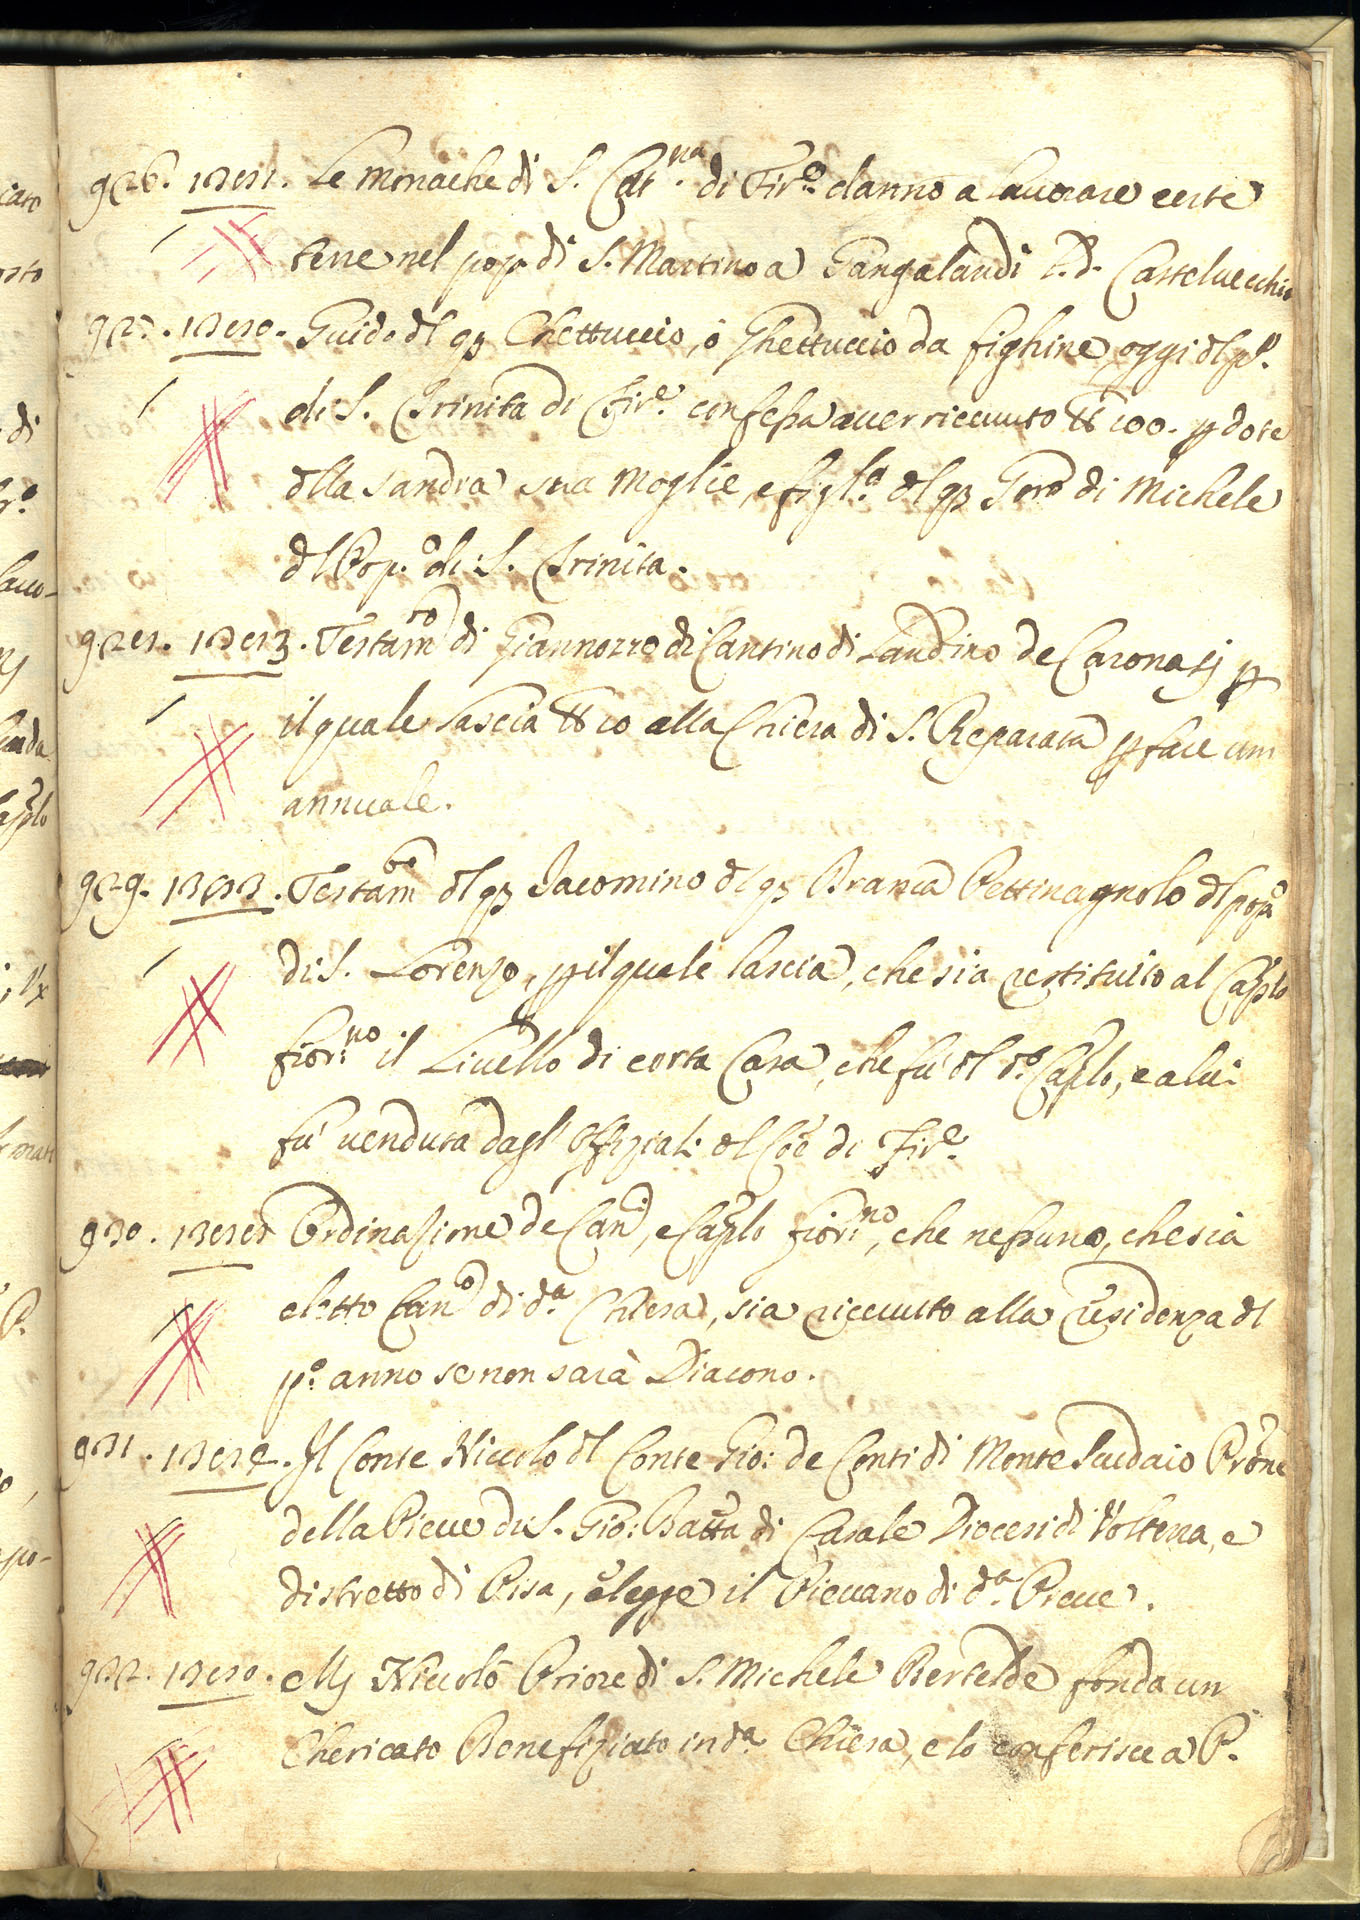 926. Le Monache di S. Cat.na di Fir.e danno a lavorare certe
terre nel pop. di S. Martino a Gangalandi l.d. Castelvecchio
927. Guido dl qz Chettuccio, ò Ghettuccio da fighine, oggi dl p.o
di S. Trinita di Fir.e confessa aver ricevuto 100. p dote
dlla Sandra sua Moglie, e figl.a dl qz Goro di Michele
dl Pop.o di S. Trinita.
928. Testam.to di Giannozzo di Cantino di Landino de Caronati p
il quale lascia 10 alla Chiesa di S. Reparata p fare un
annuale.
929. 1383. Testam.to dl qz Jacomino dl qz Branca Pettinagnolo dl pop.o
di S. Lorenzo, p il quale lascia, che sia restituito al Caplo
fior.no il Livello di certa Casa, che fù dl d.o Caplo, e a lui
fù venduta dagl' Offiziali dl Coe di Fir.e
930. Ordinazione de Can.ci, e Caplo fior.no, che nessuno, che sia
eletto Can.o di d.a Chiesa, sia ricevuto alla residenza dl
p.o anno se non sarà Diacono.
931. Il Conte Niccolo dl Conte Gio: de Conti di Monte Scudaio Prone
della Pieve di S. Gio: Batta di Casale Diocesi di Volterra, e
distretto di Pisa, elegge il Pievano di d.a Pieve.
932. Niccolò Priore di S. Michele Bertelde fonda un
Chericato Benefiziato in d.a Chiesa, e lo conferisce a P.